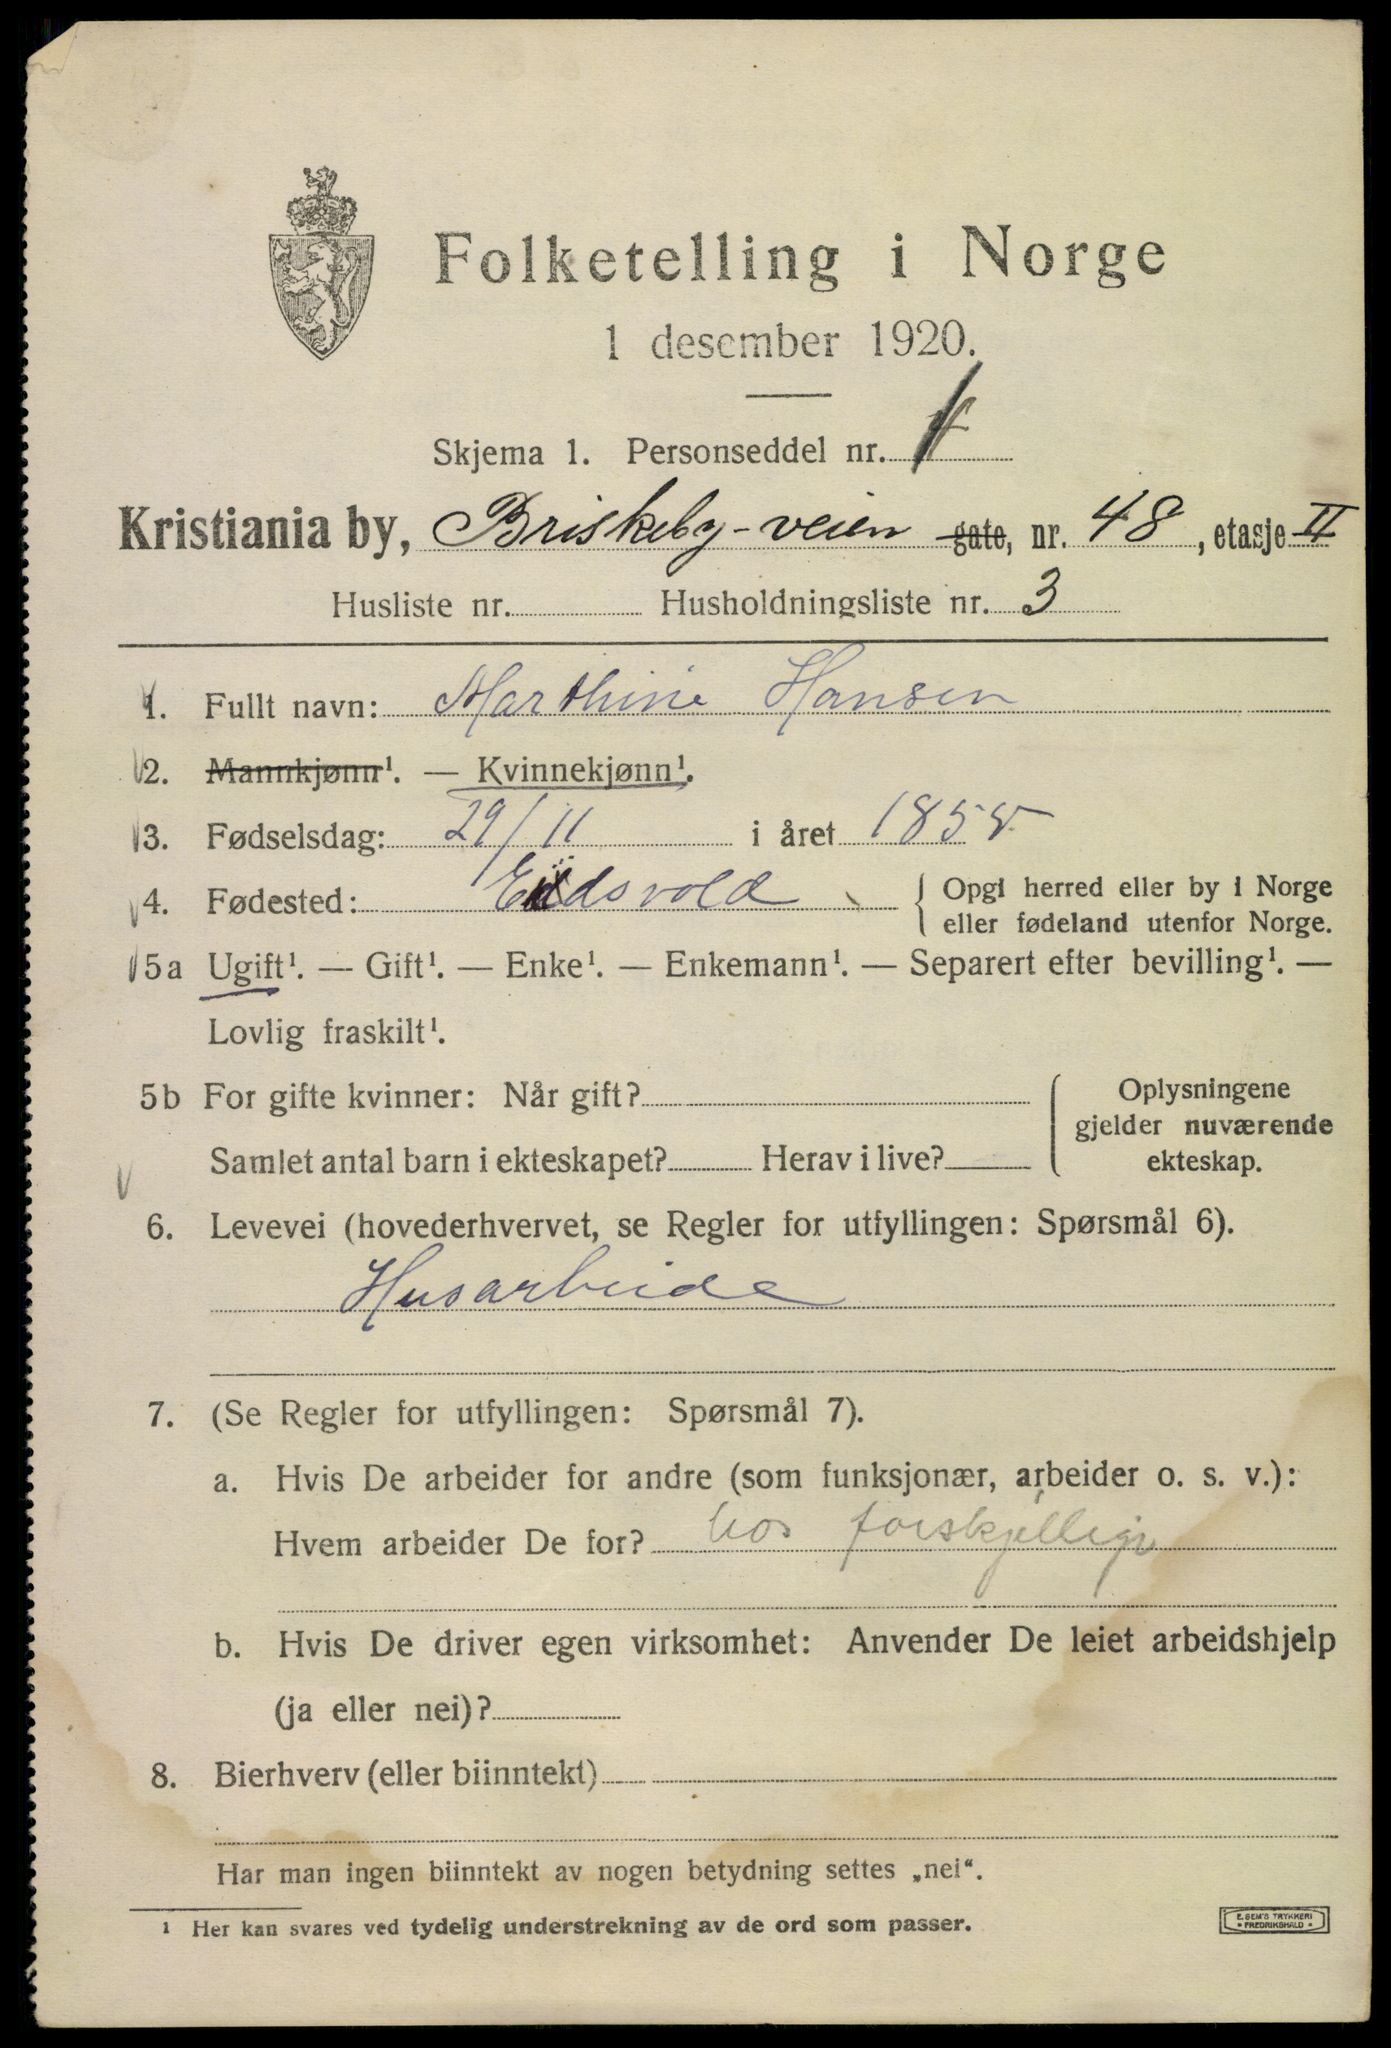 Folketelling i Norge
1 desember 1920.
Skjema 1. Personseddel nr.
Kristiania by, Briskeby-veien gate, nr. 48, etasje II
Husliste nr. Husholdningsliste nr. 3
1. Fullt navn: Marthine Hansen
2. Mannkjønn¹. — Kvinnekjønn¹.
3. Fødselsdag: 29/11 i året
4. Fødested: Eidsvold { Opgi herred eller by i Norge
eller fødeland utenfor Norge.
5a Ugift¹. — Gift¹. — Enke¹. — Enkemann¹. — Separert efter bevilling¹. —
Lovlig fraskilt¹.
5b For gifte kvinner: Når gift? { Oplysningene
gjelder nuværende
Samlet antal barn i ekteskapet? Herav i live? ekteskap.
6. Levevei (hovederhvervet, se Regler for utfyllingen: Spørsmål 6).
Husarbeide
7. (Se Regler for utfyllingen: Spørsmål 7).
a. Hvis De arbeider for andre (som funksjonær, arbeider o. s. v.):
Hvem arbeider De for? hos forskjellige
b. Hvis De driver egen virksomhet: Anvender De leiet arbeidshjelp
(ja eller nei)?
8. Bierhverv (eller biinntekt) —
Har man ingen biinntekt av nogen betydning settes „nei“.
¹ Her kan svares ved tydelig understrekning av de ord som passer.
E. SEM'S TRYKKERI
• FREDRIKSHALD •